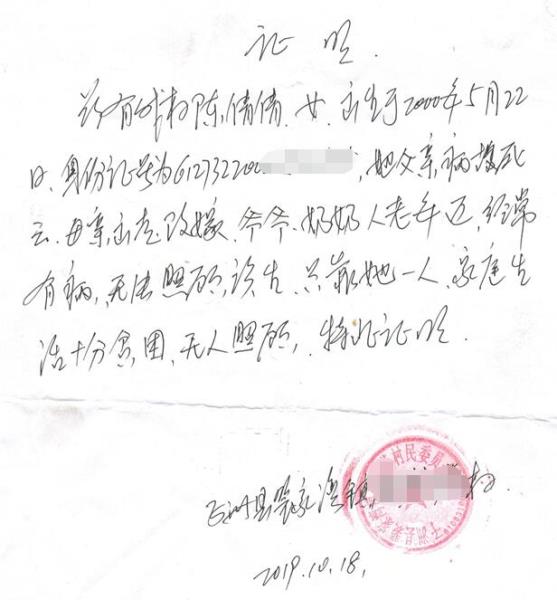 证明
兹有我村陈倩倩,女,出生于2000年5月22
日,身份证号为612732200,她父亲病故死
亡,母亲出走改嫁,爷爷、奶奶人老年迈,经常
有病,无法照顾,只靠她一人,家庭生
活十分贫困,无人照顾,特此证明
村民委员
县 镇 村
2019.10.18.